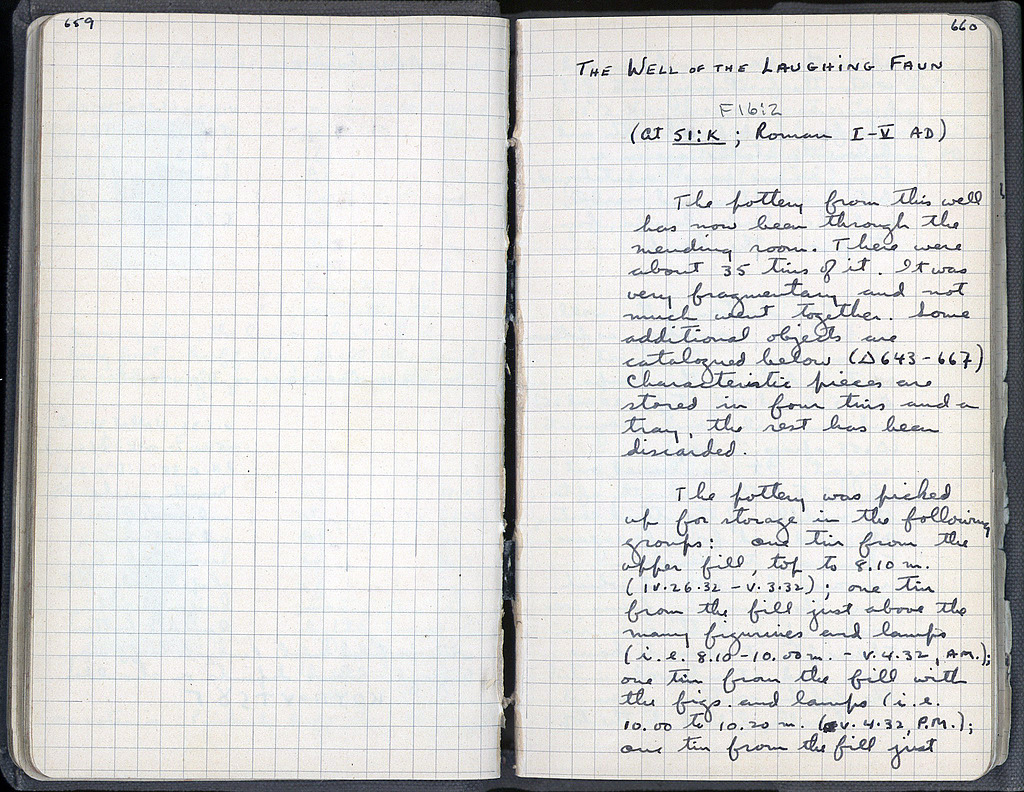 659
660
THE WELL OF THE LAUGHING FAUN
F16:2
(at 51:K ; Roman I-V AD)
The pottery from this well
has now been through the
mending room. There were
about 35 tins of it. It was
very fragmentary and not
much went together. Some
additional objects are
catalogued below (Δ643-667)
Characteristic pieces are
stored in four tins and a
tray, the rest has been
discarded.
The pottery was picked
up for storage in the following
groups: one tin from the
upper fill, top to 8.10 m.
(IV.26.32 - V.3.32); one tin
from the fill just above the
many figurines and lamps
(i.e. 8.10-10.00 m. - V.4.32, A.M.);
one tin from the fill with
the figs. and lamps (i.e.
10.00 to 10.20 m. (V.4.32, P.M.);
one tin from the fill just